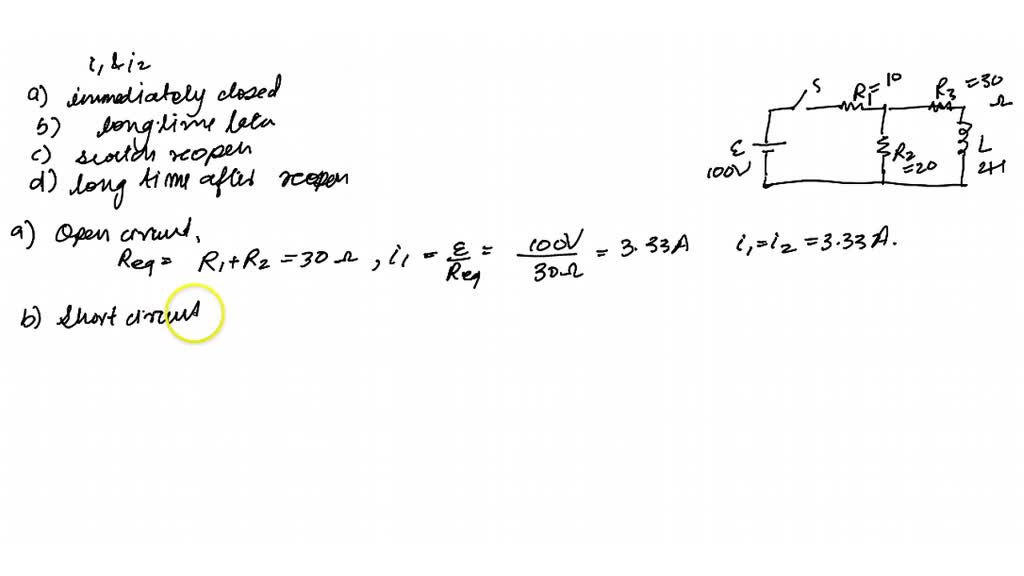 i₁ & i₂
a) immediately closed
b) long time late
c) switch reopen
d) long time after reopen
S
R₁=10
R₃=30
Ω
ε
100V
R₂
=20
L
2H
a) Open circuit,
Req = R₁+R₂ = 30Ω, i₁ = ε/Req = 100V/30Ω = 3.33A i₁=i₂=3.33A.
b) Short circuit